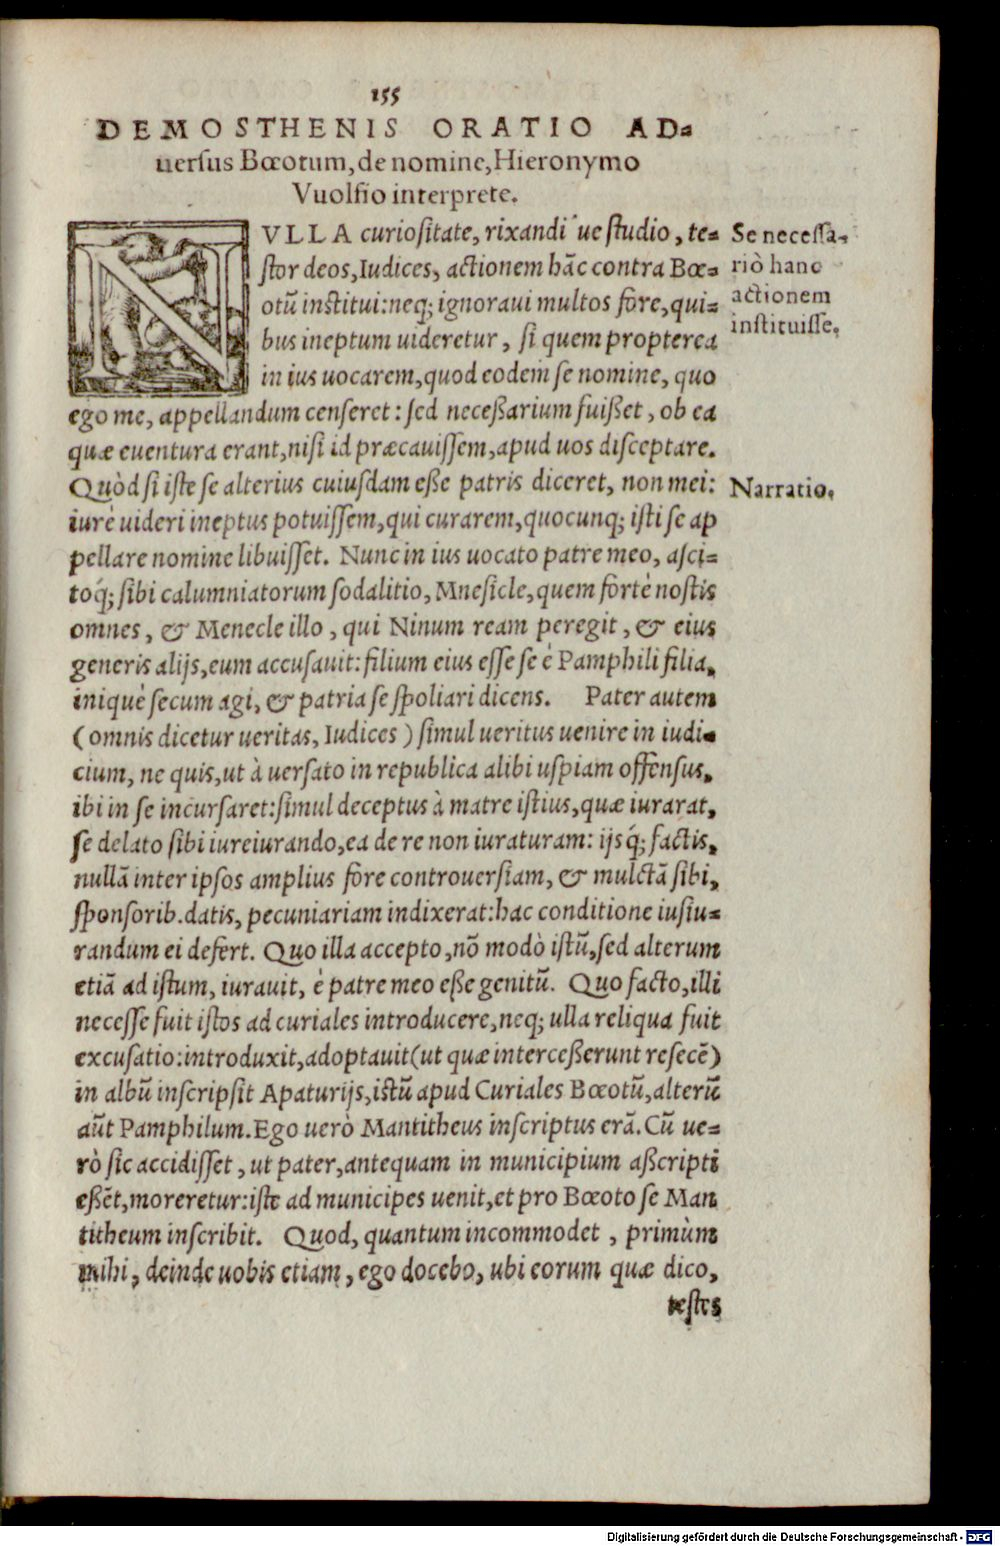 155
DEMOSTHENIS ORATIO AD-
uersus Bœotum, de nomine, Hieronymo
Vuolfio interprete.
NVLLA curiositate, rixandi ue studio, te-
stor deos, Iudices, actionem hãc contra Bœ-
otũ institui: neq; ignoraui multos fore, qui-
bus ineptum uideretur, si quem propterea
in ius uocarem, quod eodem se nomine, quo
ego me, appellandum censeret: sed neceßarium fuißet, ob ea
quæ euentura erant, nisi id præcauissem, apud uos disceptare.
Quòd si iste se alterius cuiusdam eße patris diceret, non mei:
iure uideri ineptus potuissem, qui curarem, quocunq; isti se ap
pellare nomine libuisset. Nunc in ius uocato patre meo, asci-
toq́; sibi calumniatorum sodalitio, Mnesicle, quem fortè nostis
omnes, & Menecle illo, qui Ninum ream peregit, & eius
generis alijs, eum accusauit: filium eius esse se è Pamphili filia,
iniquè secum agi, & patria se spoliari dicens. Pater autem
(omnis dicetur ueritas, Iudices) simul ueritus uenire in iudi-
cium, ne quis, ut à uersato in republica alibi uspiam offensus,
ibi in se incursaret: simul deceptus à matre istius, quæ iurarat,
se delato sibi iureiurando, ea de re non iuraturam: ijsq́; factis,
nullã inter ipsos amplius fore controuersiam, & mulctã sibi,
sponsorib. datis, pecuniariam indixerat: hac conditione iusiu-
randum ei defert. Quo illa accepto, nõ modò istũ, sed alterum
etiã ad istum, iurauit, è patre meo eße genitũ. Quo facto, illi
necesse fuit istos ad curiales introducere, neq; ulla reliqua fuit
excusatio: introduxit, adoptauit (ut quæ interceßerunt resecẽ)
in albũ inscripsit Apaturijs, istũ apud Curiales Bœotũ, alterũ
aũt Pamphilum. Ego uerò Mantitheus inscriptus erã. Cũ ue-
rò sic accidisset, ut pater, antequam in municipium aßcripti
eßẽt, moreretur: iste ad municipes uenit, et pro Bœoto se Man
titheum inscribit. Quod, quantum incommodet, primùm
mihi, deinde uobis etiam, ego docebo, ubi eorum quæ dico,
testes
Se necessa-
riò hanc
actionem
instituisse.
Narratio.
Digitalisierung gefördert durch die Deutsche Forschungsgemeinschaft - DFG